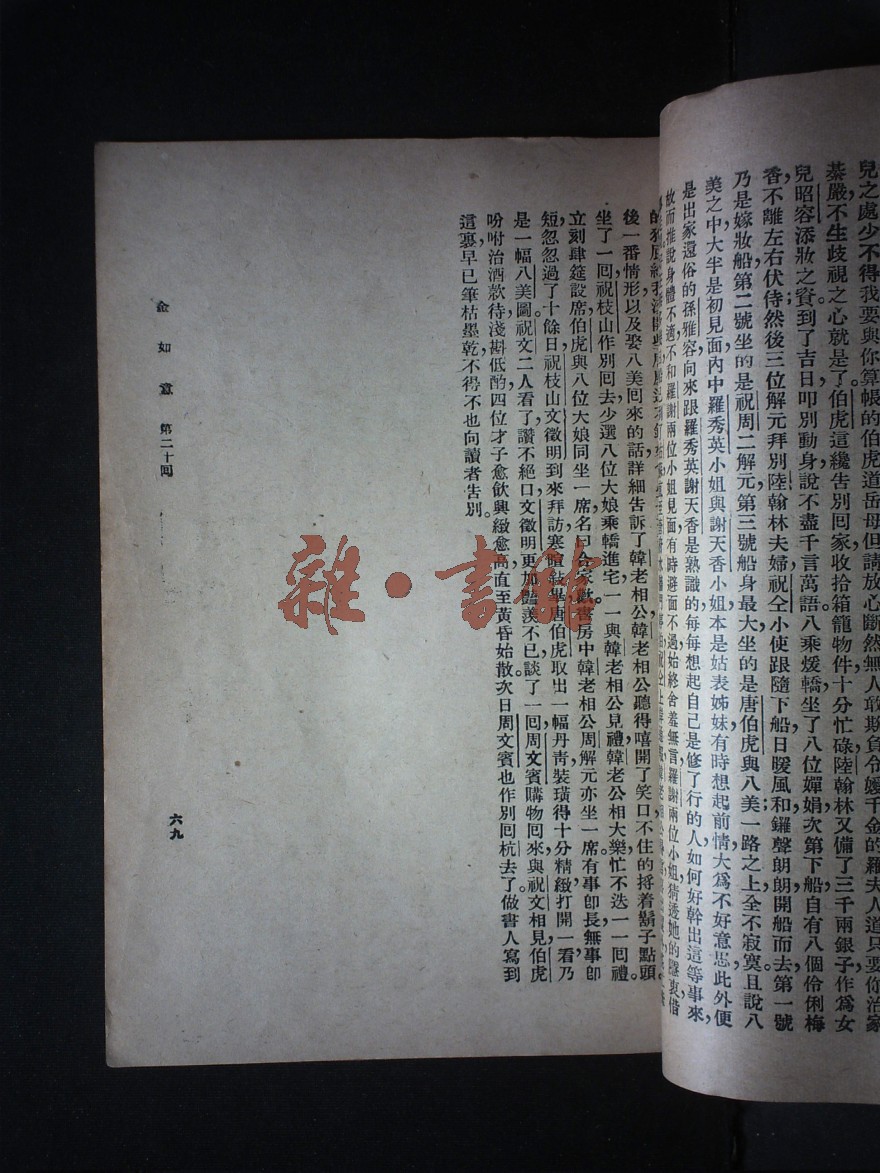 兒之處少不得我要與你算帳的伯虎道岳母但請放心斷然無人敢斯負令嬡千金的羅夫人道只要你治家
綦嚴不生歧視之心就是了伯虎這纔告別回家收拾箱籠物件十分忙碌陸翰林又備了三千兩銀子作爲女
兒昭容添妝之資。到了吉日叩別動身說不盡千言萬語八乘煖轎坐了八位嬋娟次第下船自有八個伶俐梅
香不離左右伏侍然後三位解元拜別陸翰林夫婦祝仝小使跟隨下船日暖風和鑼聲朗朗開船而去第一號
乃是嫁妝船第二號坐的是祝周二解元第三號船身最大坐的是唐伯虎與八美一路之上全不寂寞且說八
美之中大半是初見面內中羅秀英小姐與謝天香小姐本是姑表姊妹有時想起前情大爲不好意思此外便
是出家還俗的孫雅容向來跟羅秀英謝天香是熟識的每每想起自己是修了行的人如何好幹出這等事來,
故而推說身體不適不和羅謝兩位小姐見面有時避面不過始終含羞無言羅謝兩位小姐猜透她的隱衷借
後一番情形以及娶八美回來的話詳細告訴了韓老相公韓老相公聽得嘻開了笑口不住的捋着鬍子點頭
坐了一回祝枝山作別回去少選八位大娘乘轎進宅一一與韓老相公見禮韓老公相大樂忙不迭一一回禮
立刻肆筵設席伯虎與八位大娘同坐一席名曰合家歡書房中韓老相公周解元亦坐一席有事卽長無事卽
短忽忽過了十餘日祝枝山文徵明到來拜訪寒暄敍畢唐伯虎取出一幅丹靑裝璜得十分精緻打開一看乃
是一幅八美圖祝文二人看了讚不絕口文徵明更加豔羨不已談了一回周文賓購物回來與祝文相見伯虎
吩咐治酒款待淺斟低酌四位才子愈飮興緻愈高直至黃昏始散次日周文賓也作別回杭去了。做書人寫到
這裏早已筆枯墨乾不得不也向讀者告別。
金如意 第二十回
六九
雜·書館